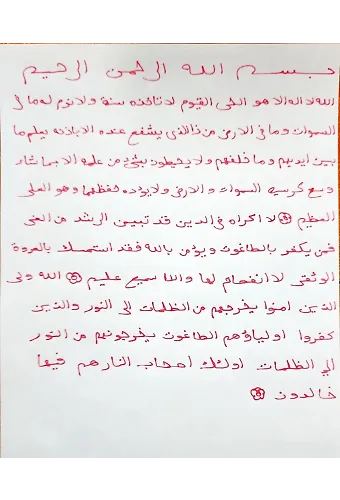 بسم الله الرحمن الرحيم
الله لا اله الا هو الحي القيوم لا تاخذه سنة ولا نوم له ما في
السموات وما في الارض من ذا الذي يشفع عنده الا باذنه يعلم ما
بين ايديهم وما خلفهم ولا يحيطون بشئ من علمه الا بما شاء
وسع كرسيه السموات و الارض ولا يؤده حفظهما وهو العلي
العظيم لا اكراه في الدين قد تبين الرشد من الغي
فمن يكفر بالطاغوت ويؤمن بالله فقد استمسك بالعروة
الوثقى لا انفصام لها والله سميع عليم الله ولي
الذين امنوا يخرجهم من الظلمات الى النور والذين
كفروا اولياؤهم الطاغوت يخرجونهم من النور
الي الظلمات اولئك اصحاب النار هم فيها
خالدون